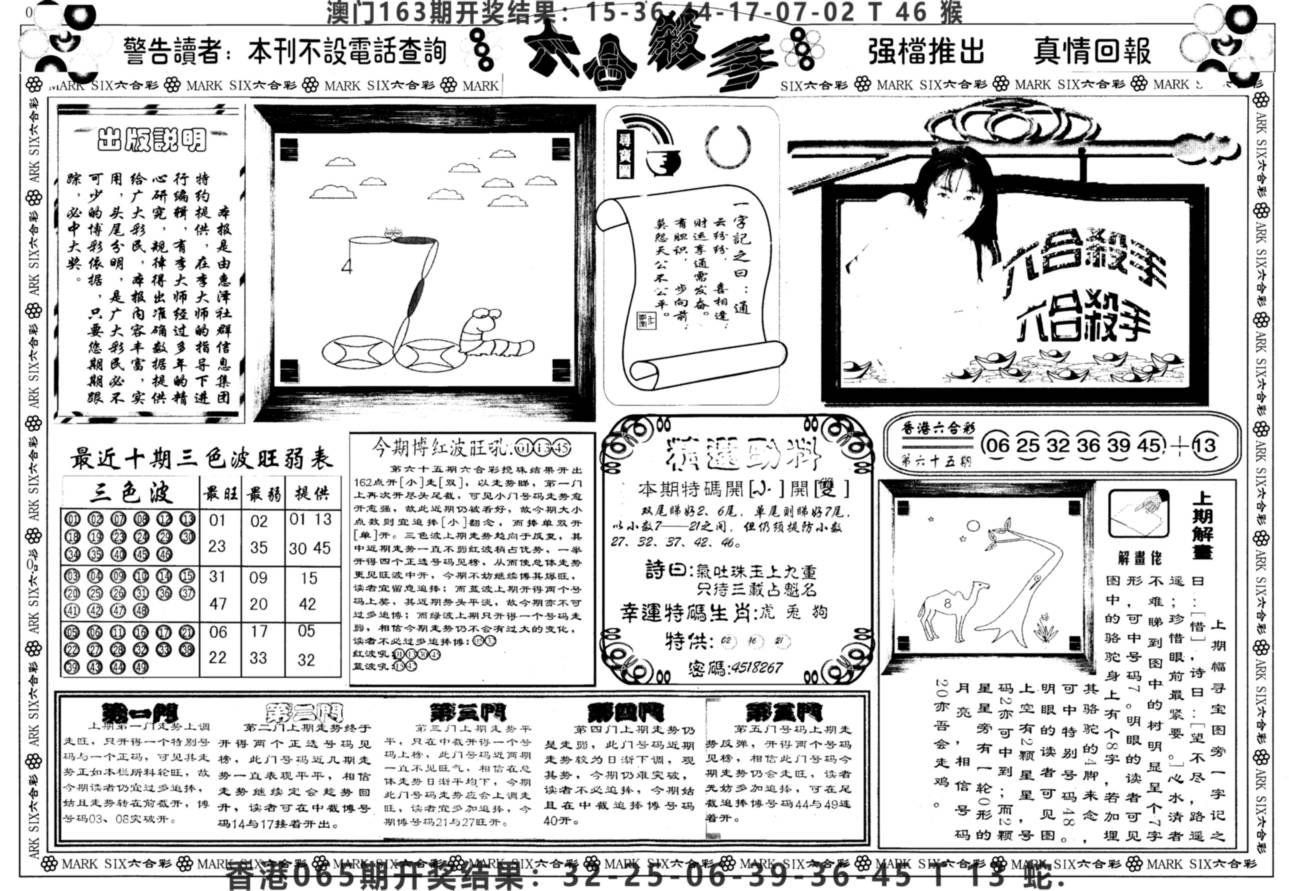 澳门163期开奖结果：15-36-44-17-07-02 T 46 猴
警告讀者：本刊不設電話查詢
六合殺手
强檔推出 真情回報
MARK SIX六合彩
出版説明
本报是由惠泽社群信息集团
特约提供，在李大师的指导下进
行编辑，有李大师经过多年的精
心研究，规律得出准确数据提供
给广大彩民，本报内容丰富，实
用，头尾分明，是广大彩民必不
可少的博彩依据，只要您期期跟
踪，必中大奖。
4
尋寶圖
一字記之曰：通
云纷纷，喜相逢，
财运享通需发奋。
有胆识，步向前，
莫怨天公不公平。
六合殺手
六合殺手
香港六合彩
第六十五期
06 25 32 36 39 45 + 13
最近十期三色波旺弱表
三色波 最旺 最弱 提供
01 02 07 08 12 13
18 19 23 24 29 30
34 35 40 45 46
01 02 01 13
23 35 30 45
03 04 09 10 14 15
20 25 26 31 36 37
41 42 47 48
31 09 15
47 20 42
05 06 11 16 17 21
22 27 28 32 33 38
39 43 44 49
06 17 05
22 33 32
今期博红波旺吼.01 13 45
第六十五期六合彩搅珠结果开出
162点开[小]走[双]，以走势睇，第一门
上再次开尽头足截，可见小门号码走势愈
开愈强，故此近期仍被看好，故今期大小
点数则宜追捧[小]翻念，而捧单双开
[单]开。三色波上期走势趋向于反复，其
中近期走势一直不弱红波稍占优势，一举
开得四个正选号码见榜，从而使总体走势
更见旺波中开，今期不妨继续博其爆旺，
读者宜留意追捧；而蓝波上期开得两个号
码上奖，其近期势头平淡，故今期亦不可
过多追博；而绿波上期只开得一个号码走
弱，相信今期走势仍不会有过大的变化，
读者不必过多追捧博：05 33
红波吼：01 13 30 45
蓝波吼：15 42
精選勁料
本期特碼開[小]開[雙]
双尾睇好2、6尾，单尾则睇好7尾，
以小数7——21之间，但仍须提防小数
27、32、37、42、46。
詩曰：氣吐珠玉上九重
只待三載占魁名
幸運特碼生肖：虎 兎 狗
特供：02 16 21
密碼：4518267
8
解畫佬
上期解畫
上期幅寻宝图旁一字记之
曰：[惜]，诗曰：[望不尽，路遥
遥；珍惜眼前最紧要。]心水清者
不难睇到图中的树明显呈个7字
形，可中号码7。明眼的读者可见
图中的骆驼身上有个8字，若加埋
其骆驼的4脚来念，
可中特别号码48。
明眼的读者可见图
上空有2颗星星，号
码2亦可中到；而2颗
星星旁有一轮0形的
月亮，相信号码
20亦吾会走鸡。
第一門
上期第一门走势上调
走旺，只开得一个特别号
码与一个正码，可见其走
势正如本栏所料轮旺，故
今期读者仍宜过多追捧，
姑且走势转在前截开，博
号码03、08突破开。
第二門
第二门上期走势终于
开得两个正选号码见
榜，此门号码近几期走
势一直表现平平，相信
走势继续定会趁势回
开，读者可在中截博号
码14与17接着开出。
第三門
第三门上期走势平
平，只在中截开得一个号
码上榜，此门号码近两期
一直不见旺气，相信在总
体走势日渐平均下，今期
此门号码走势应会上调走
旺，读者宜多加追捧，今
期博号码21与27旺开。
第四門
第四门上期走势仍
是走弱，此门号码近期
走势较为日渐下调，观
其势，今期仍难突破，
读者不必追捧，今期姑
且在中截追捧博号码
40开。
第五門
第五门号码上期走
势反弹，开得两个号码
见榜，相信此门号码今
期走势仍会走旺，读者
无妨多加追捧，可在足
截追捧博号码44与49连
着开。
MARK SIX六合彩
香港065期开奖结果：32-25-06-39-36-45 T 13 蛇.